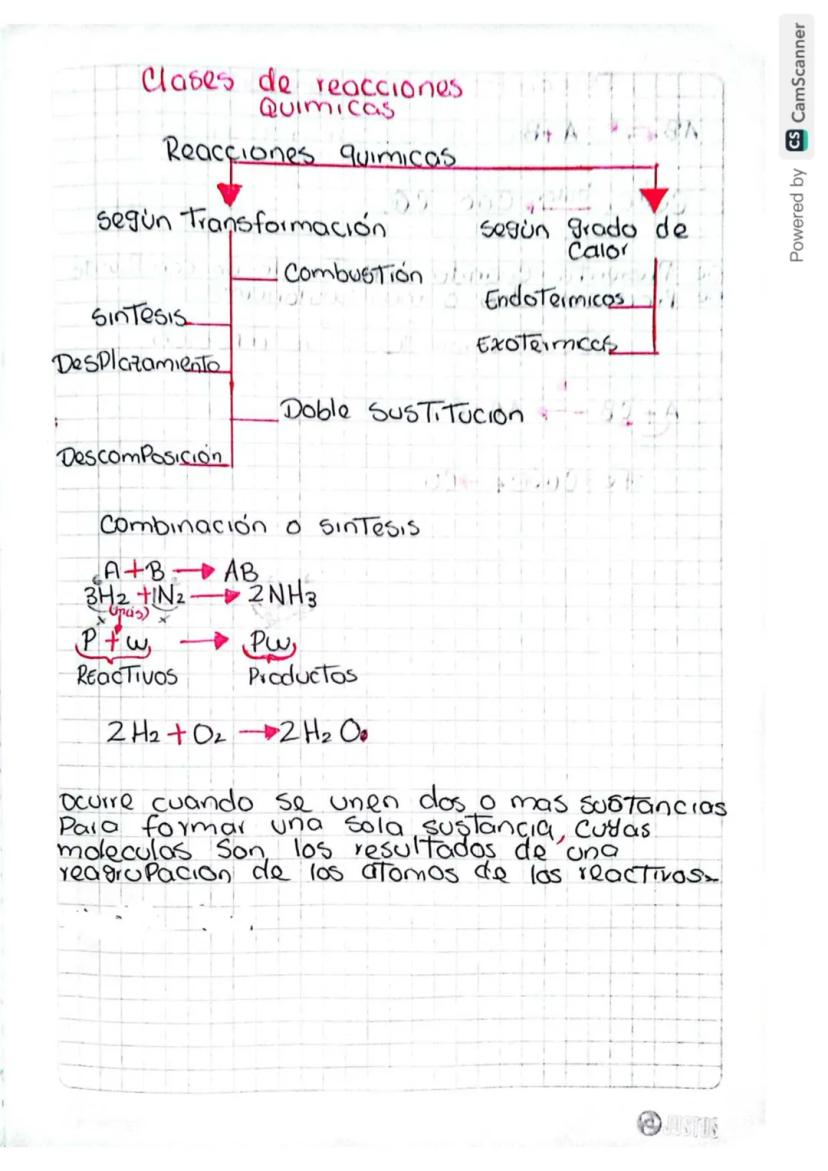 Clases de reacciones
Quimicas
Reacciones quimicas
según Transformación
según grado de
Calor
Combustión
Endotermicos
sintesis
Exotermicas
Desplazamiento
Doble sustitucion
Descomposición
Combinación o sintesis
A + B → AB
3H2 + 1N2 → 2NH3
P + w → Pw
Reactivos Productos
2H2 + O2 → 2H2O
ocurre cuando se unen dos o mas sustancias
Para formar una sola sustancia, cuyas
moleculas son los resultados de una
reagrupacion de los atomos de los reactivos
JUSTUS
Powered by CS CamScanner